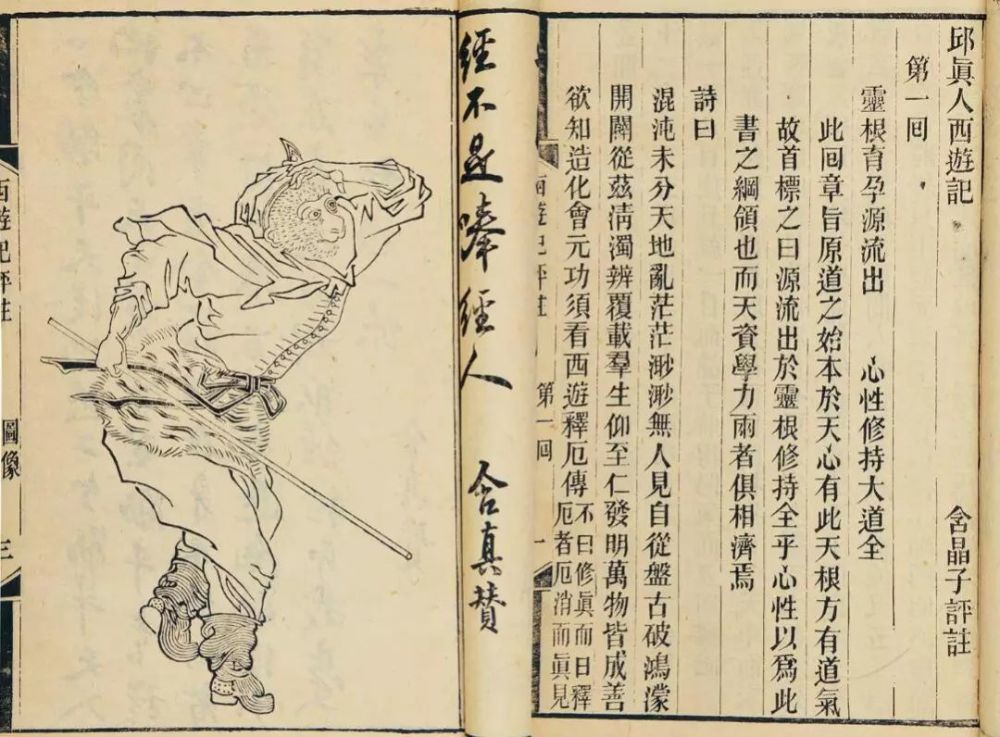 邱眞人西遊記　含晶子評註
第一囘
靈根育孕源流出　心性修持大道全
此囘章旨原道之始本於天心有此天根方有道氣
故首標之曰源流出於靈根修持全乎心性以爲此
書之綱領也而天資學力兩者俱相濟焉
詩曰
混沌未分天地亂茫茫渺渺無人見自從盤古破鴻濛
開闢從茲淸濁辨覆載羣生仰至仁發明萬物皆成善
欲知造化會元功須看西遊釋厄傳
不曰修眞而曰釋
厄者厄消而眞見
西遊記評註　第一囘　一
經不是唪經人　含真贊
西遊記評註　圖像　三